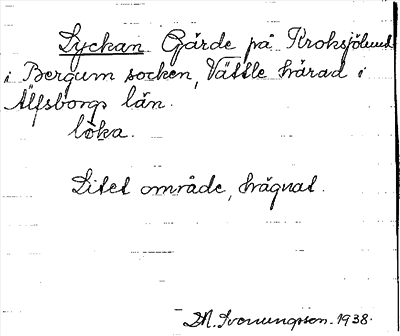 Lyckan Gärde på Kroksjölund
i Bergum socken, Vättle härad i
Älfsborgs län.
löka.
Litet område, hägnat.
M. Ivonungsson. 1938.